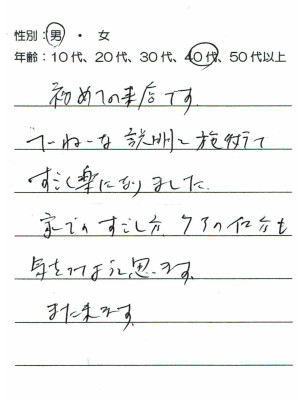 性別：男 ・ 女
年齢：10代、20代、30代、40代、50代以上
初めての来店です。
てーねーな説明と施術で
すごく楽になりました。
家でのすごし方、ケアの仕方も
気をつけようと思います。
また来ます。